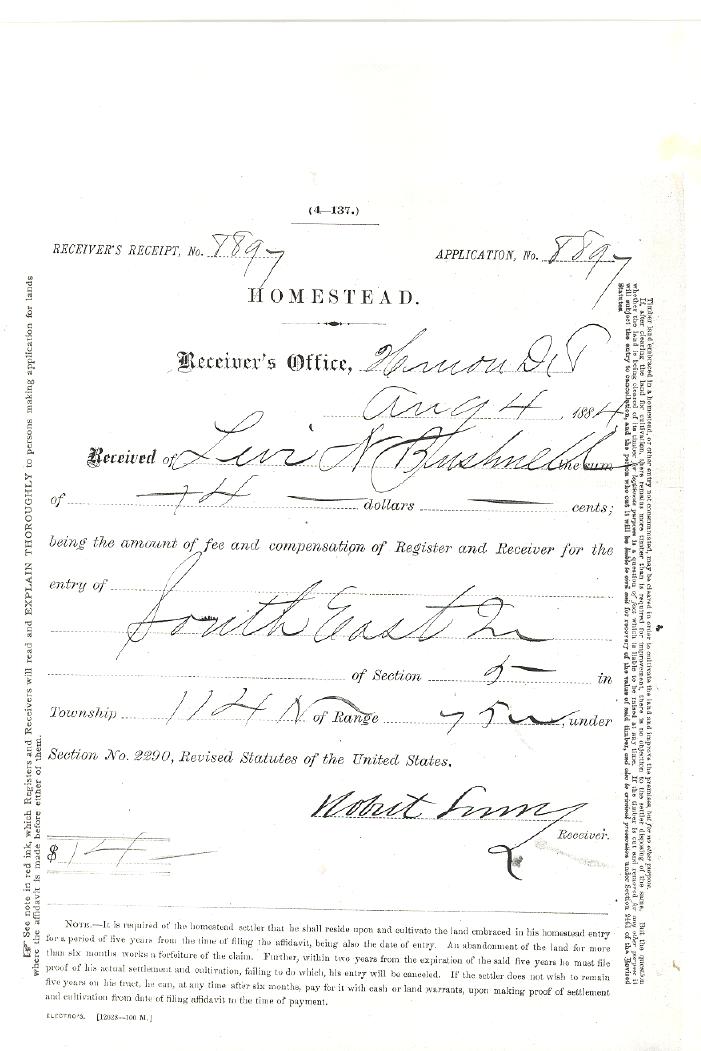 (4—137.)
RECEIVER'S RECEIPT, No. 8897
APPLICATION, No. 8897
HOMESTEAD.
Receiver's Office, Huron D.T
Aug 4, 1884
Received of Levi N Bushnell the sum
of 14 dollars cents;
being the amount of fee and compensation of Register and Receiver for the
entry of
South East Qr
of Section 5 in
Township 114 N of Range 75 W, under
Section No. 2290, Revised Statutes of the United States.
Robert Lowry
Receiver.
$ 14
NOTE.—It is required of the homestead settler that he shall reside upon and cultivate the land embraced in his homestead entry
for a period of five years from the time of filing the affidavit, being also the date of entry. An abandonment of the land for more
than six months works a forfeiture of the claim. Further, within two years from the expiration of the said five years he must file
proof of his actual settlement and cultivation, failing to do which, his entry will be canceled. If the settler does not wish to remain
five years on his tract, he can, at any time after six months, pay for it with cash or land warrants, upon making proof of settlement
and cultivation from date of filing affidavit to the time of payment.
ELECTRO'S. [12028—100 M.]
☞ See note in red ink, which Registers and Receivers will read and EXPLAIN THOROUGHLY to persons making application for lands
where the affidavit is made before either of them.
Timber land embraced in a homestead, or other entry not consummated, may be cleared in order to cultivate the land and improve the premises, but for no other purpose.
If, after clearing the land for cultivation, there remains more timber than is required for improvement, there is no objection to the settler disposing of the same. But the question
whether the land is being cleared of its timber for legitimate purposes is a question of fact which is liable to be raised at any time. If the timber is cut and removed for any other purpose it
will subject the entry to cancellation, and the person who cut it will be liable to civil suit for recovery of the value of said timber, and also to criminal prosecution under Section 2461 of the Revised
Statutes.